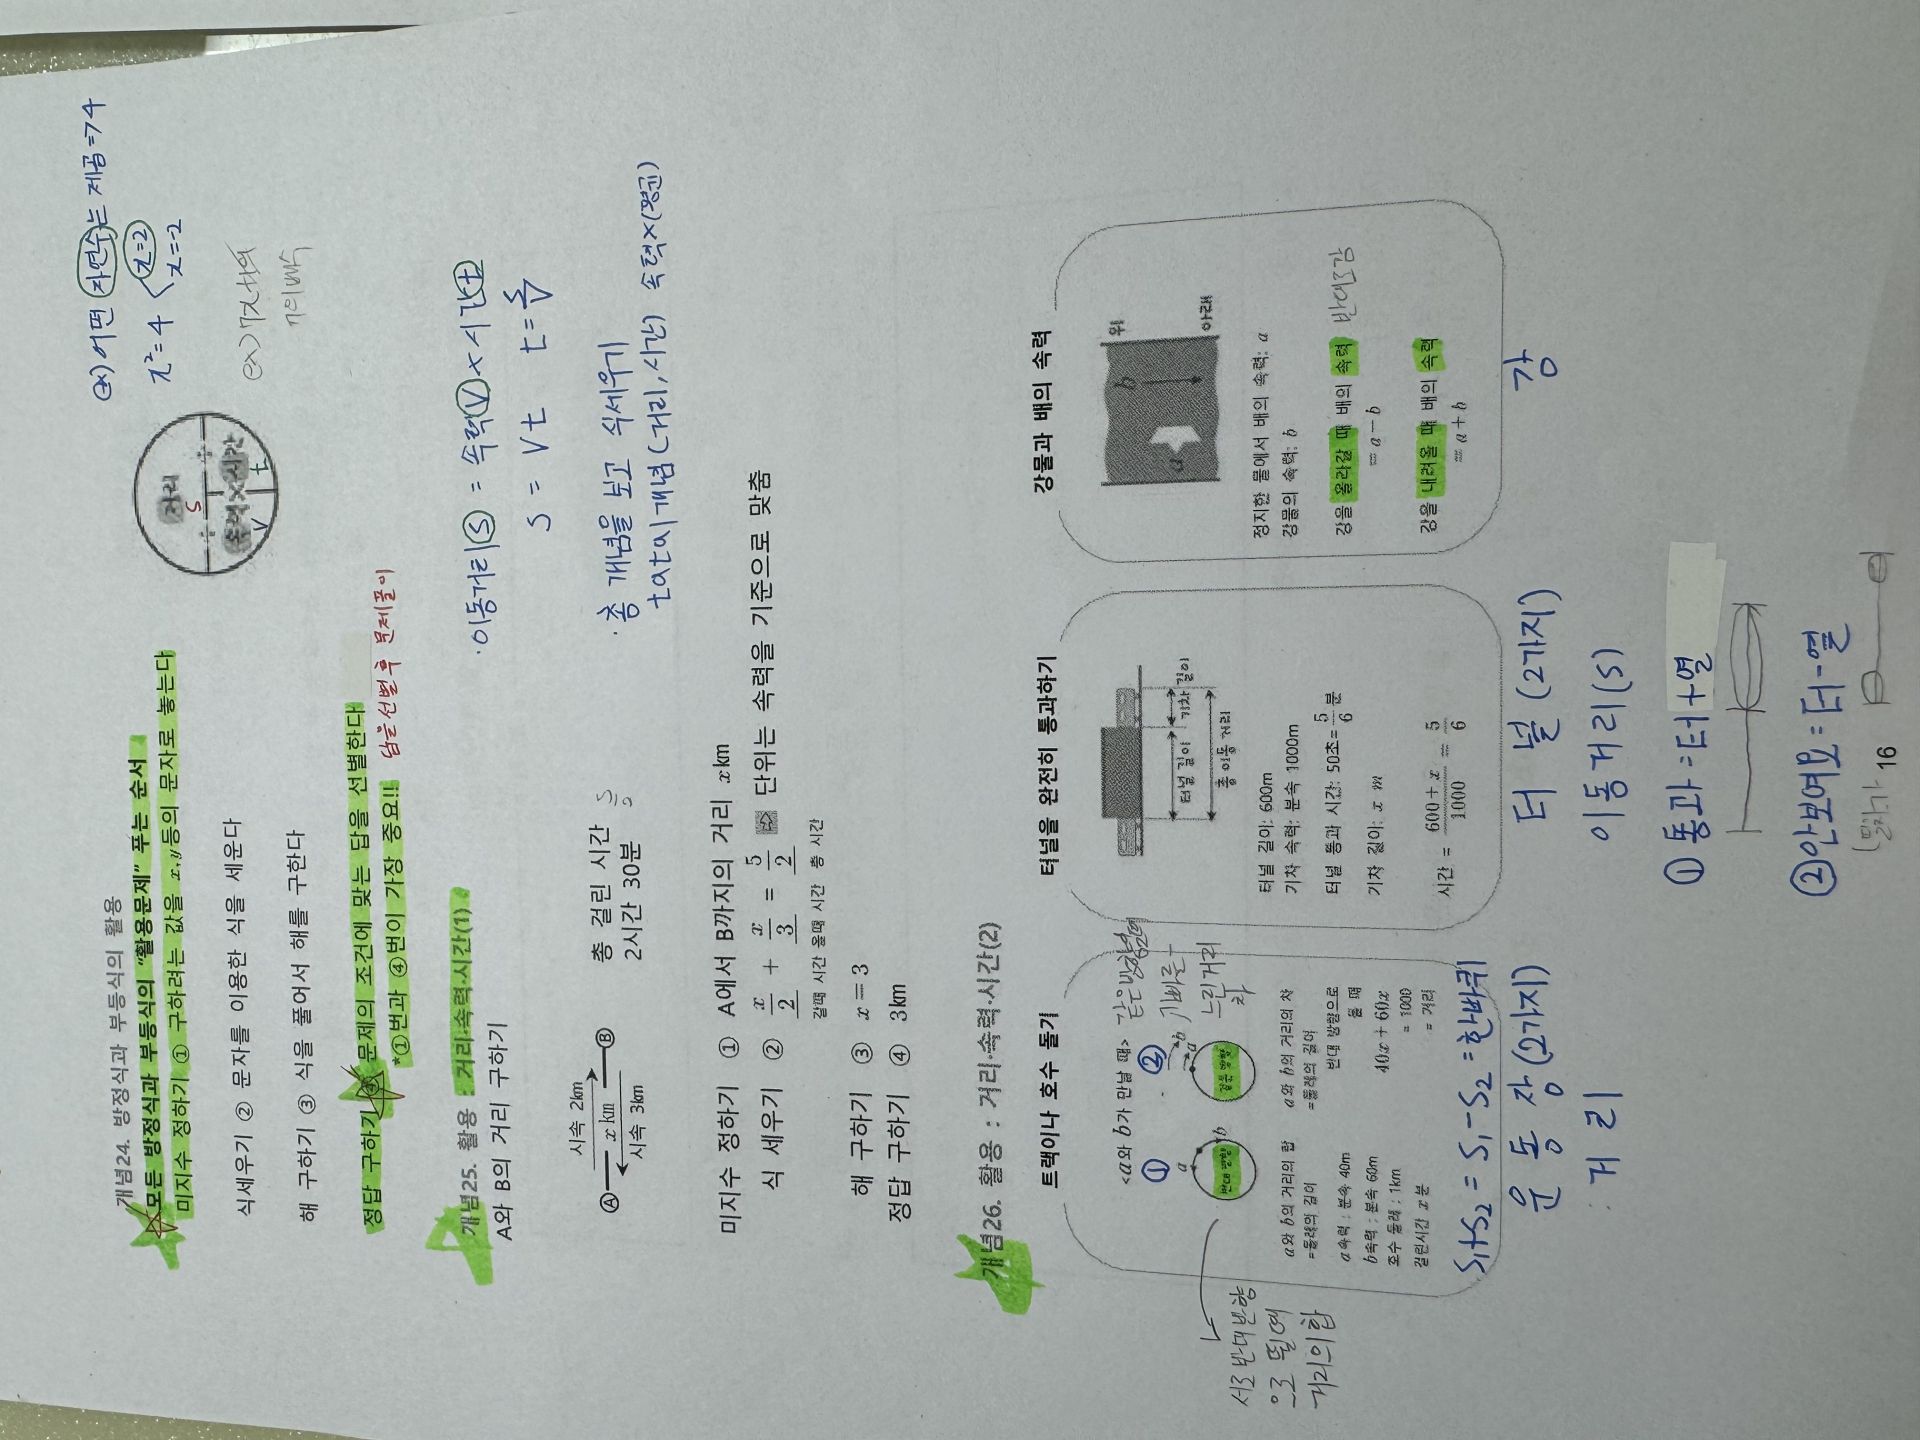 개념24. 방정식과 부등식의 활용
모든 방정식과 부등식의 "활용문제" 푸는 순서
미지수 정하기 ① 구하려는 값을 x, y등의 문자로 놓는다
식세우기 ② 문자를 이용한 식을 세운다
해 구하기 ③ 식을 풀어서 해를 구한다
정답 구하기 ④ 문제의 조건에 맞는 답을 선별한다
*①번과 ④번이 가장 중요!!
답을 선별 후 문제풀이
거리
S
속력×시간
V t
ex) 어떤 자연수는 제곱=74
x²=4 x=2
x=-2
ex)
개념25. 활용 : 거리·속력·시간(1)
A와 B의 거리 구하기
·이동거리(S) = 속력(V)×시간(t)
S = Vt t=S/V
시속 2km
Ⓐ x km Ⓑ
시속 3km
총 걸린 시간
2시간 30분 5/2
·총 개념을 보고 식세우기
total개념(거리,시간) 속력×(평균)
미지수 정하기 ① A에서 B까지의 거리 x km
식 세우기 ② x/2 + x/3 = 5/2 ⇨ 단위는 속력을 기준으로 맞춤
갈때 시간 올때 시간 총 시간
해 구하기 ③ x=3
정답 구하기 ④ 3km
개념26. 활용 : 거리·속력·시간(2)
트랙이나 호수 돌기
<a와 b가 만날 때>
① ②
a b
반대 방향
a b
같은 방향
같은방향일때
빠른-
느린거리
차
a와 b의 거리의 합
=둘레의 길이
a와 b의 거리의 차
=둘레의 길이
a속력 : 분속 40m
b속력 : 분속 60m
호수 둘레 : 1km
걸린시간 x분
반대 방향으로
돌 때
40x+60x
=1000
=거리
S₁+S₂ = S₁-S₂ = 한바퀴
운동장(2가지)
: 거리
서로 반대방향
으로 뛸때
거리의 합
터널을 완전히 통과하기
터널 길이 기차 길이
총 이동 거리
터널 길이: 600m
기차 속력: 분속 1000m
터널 통과 시간: 50초=5/6분
기차 길이: x m
시간 = (600+x)/1000 = 5/6
터널(2가지)
이동거리(S)
① 통과=터+열
② 안보여요=터-열
강물과 배의 속력
위
a b
아래
정지한 물에서 배의 속력: a
강물의 속력: b
강을 올라갈 때 배의 속력
= a-b
반대로감
강을 내려올 때 배의 속력
= a+b
강
16